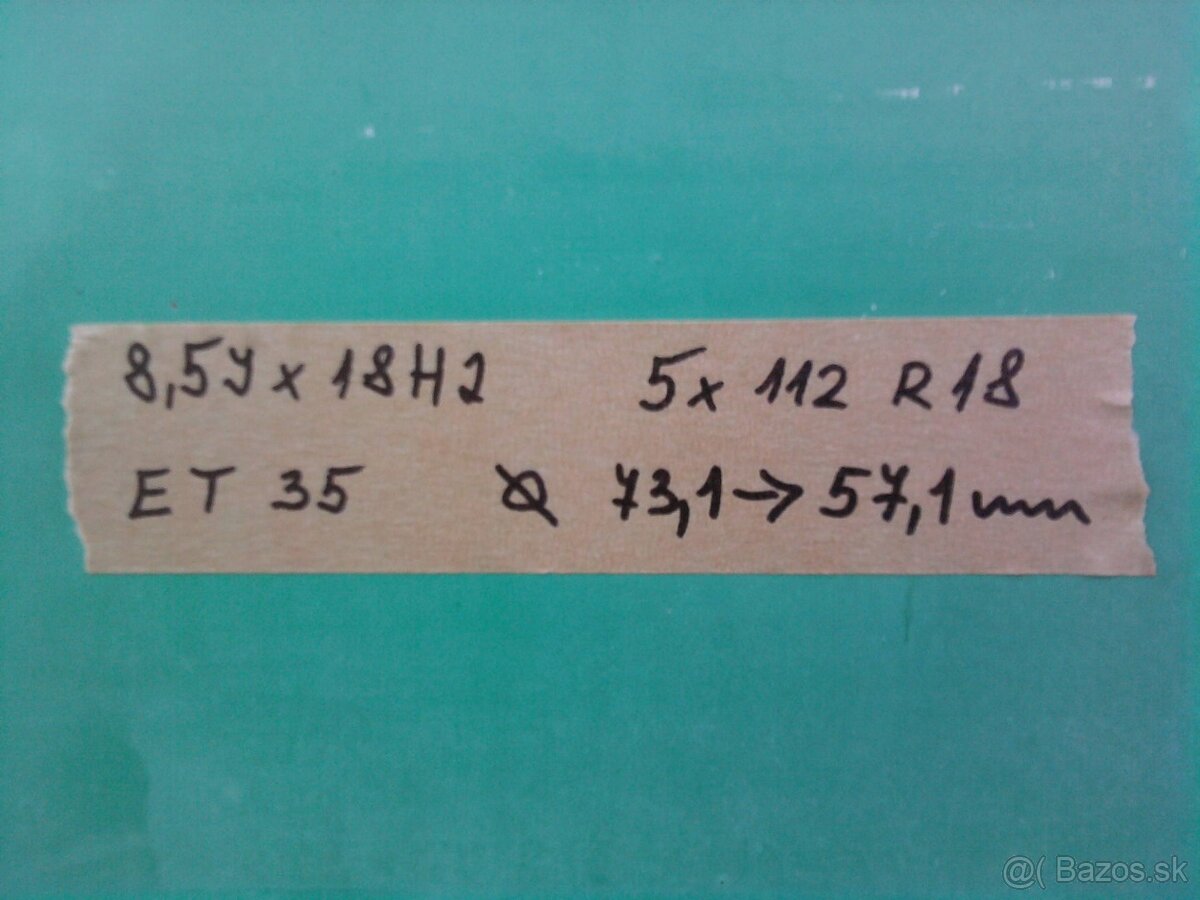 8,5J x 18 H2 5x 112 R18
ET 35 Ø 73,1→57,1mm
@( Bazos.sk